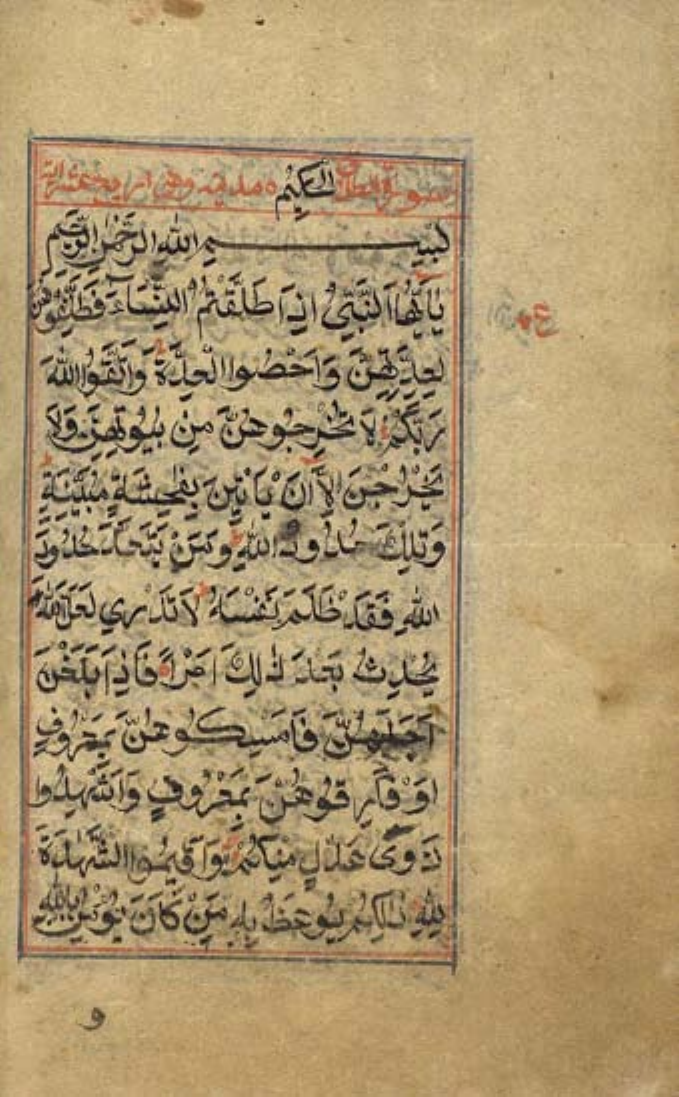 سورة الطلاق الحكيم مدنيه وهي
بسم الله الرحمن الرحيم
يٰاَيُّهَا النَّبِيُّ اِذَا طَلَّقْتُمُ النِّسَآءَ فَطَلِّقُوْهُنَّ
لِعِدَّتِهِنَّ وَاَحْصُوا الْعِدَّةَ وَاتَّقُوا اللهَ
رَبَّكُمْ لَا تُخْرِجُوْهُنَّ مِنْ بُيُوْتِهِنَّ وَلَا
يَخْرُجْنَ اِلَّا اَنْ يَاْتِيْنَ بِفٰحِشَةٍ مُبَيِّنَةٍ
وَتِلْكَ حُدُوْدُ اللهِ وَمَنْ يَتَعَدَّ حُدُوْدَ
اللهِ فَقَدْ ظَلَمَ نَفْسَهُ لَا تَدْرِي لَعَلَّ اللهَ
يُحْدِثُ بَعْدَ ذٰلِكَ اَمْرًا فَاِذَا بَلَغْنَ
اَجَلَهُنَّ فَاَمْسِكُوْهُنَّ بِمَعْرُوْفٍ
اَوْ فَارِقُوْهُنَّ بِمَعْرُوْفٍ وَاَشْهِدُوْا
ذَوَيْ عَدْلٍ مِنْكُمْ وَاَقِيْمُوا الشَّهٰدَةَ
لِلّٰهِ ذٰلِكُمْ يُوْعَظُ بِهِ مَنْ كَانَ يُؤْمِنُ بِاللهِ
و